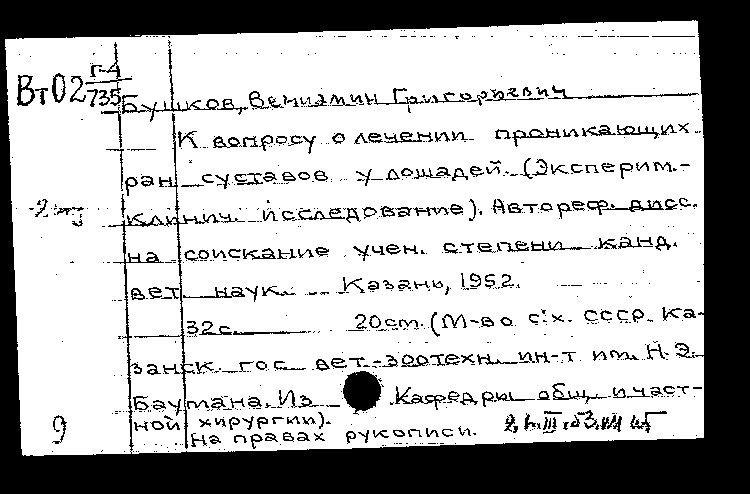 Вт02 Г-4
735
Бушков, Вениамин Григорьевич
К вопросу о лечении проникающих
ран суставов у лошадей. (Эксперим.-
2 экз
клинич. исследование). Автореф. дисс.
на соискание учен. степени канд.
вет. наук. Казань, 1952.
32с. 20см. (М-во с.х. СССР. Ка-
занск. гос. вет.-зоотехн. ин-т им. Н.Э.
Баумана. Из Кафедры общ. и част-
ной хирургии).
9
На правах рукописи.